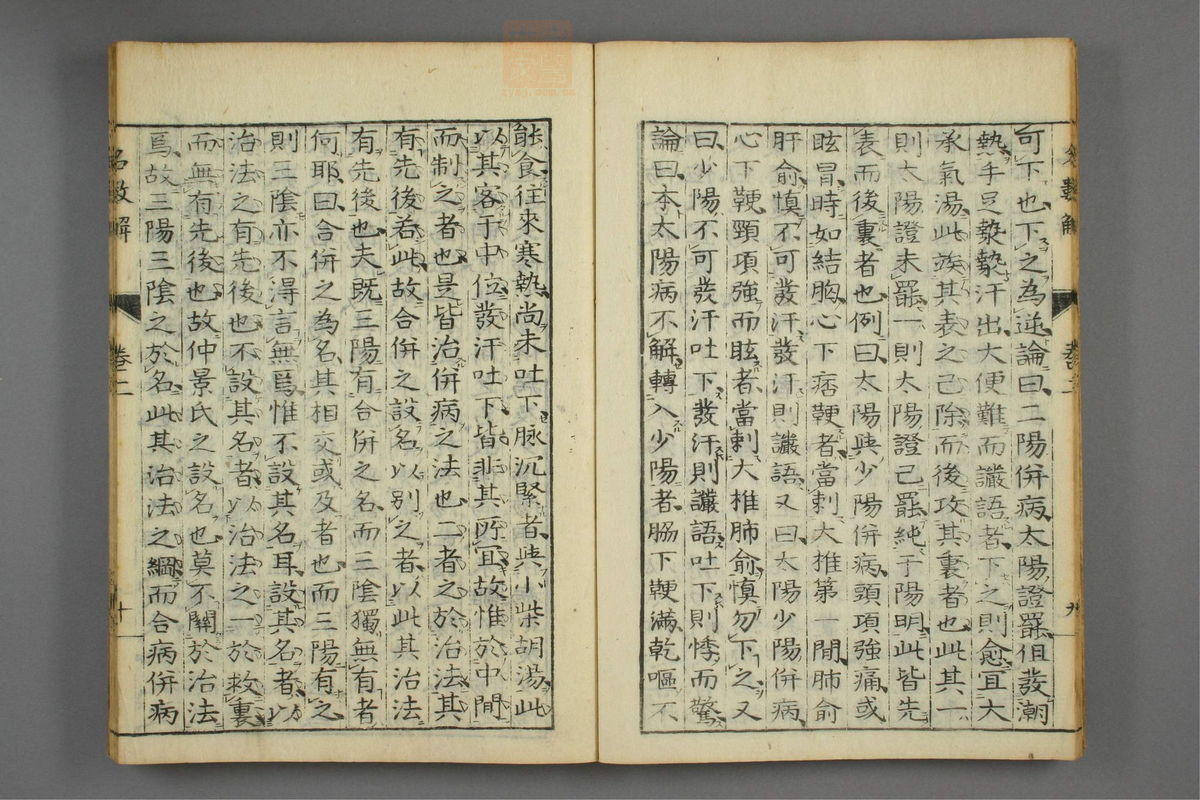 可下也下之為逆論曰二陽併病太陽證罷但發潮
熱手足漐漐汗出大便難而讝語者下之則愈宜大
承氣湯此竢其表之已除而後攻其裏者也此其一
則太陽證未罷一則太陽證已罷純于陽明此皆先
表而後裏者也例曰太陽與少陽併病頭項強痛或
眩冒時如結胸心下痞鞕者當刺大椎第一間肺俞
肝俞慎不可發汗發汗則讝語又曰太陽少陽併病
心下鞕頸項強而眩者當刺大椎肺俞慎勿下之又
曰少陽不可發汗吐下發汗則讝語吐下則悸而驚
論曰本太陽病不解轉入少陽者脇下鞕滿乾嘔不
卷之二
九
能食往來寒熱尚未吐下脉沉緊者與小柴胡湯此
以其客于中位發汗吐下皆非其所宜故惟於中間
而制之者也是皆治併病之法也二者之於治法其
有先後若此故合併之設名以別之者以此其治法
有先後也夫既三陽有合併之名而三陰獨無有者
何耶曰合併之為名其相交或及者也而三陽有之
則三陰亦不得言無焉惟不設其名耳設其名者以
治法之有先後也不設其名者以治法之一於救裏
而無有先後也故仲景氏之設名也莫不關於治法
焉故三陽三陰之於名此其治法之綱而合病併病
名數解
卷二
十